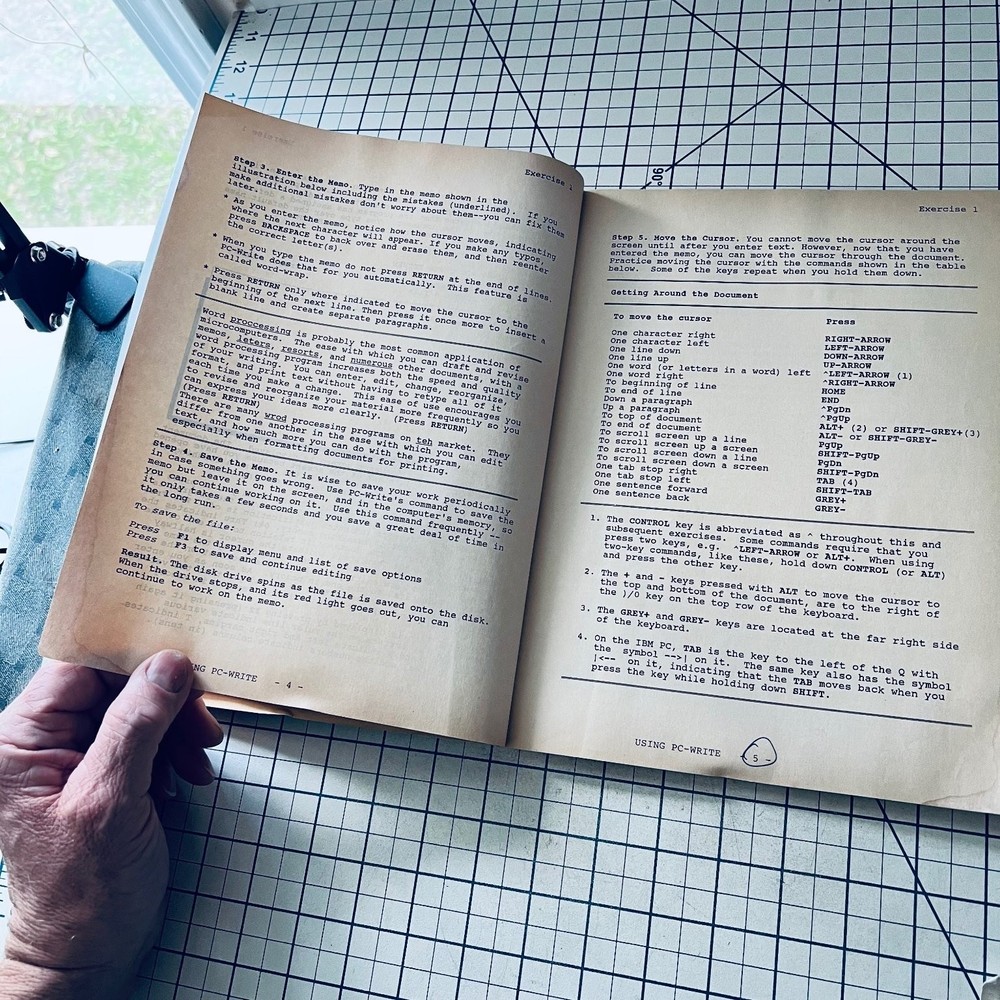 11
12
90°
Exercise 1
Step 3. Enter the Memo. Type in the memo shown in the
illustration below including the mistakes (underlined). If you
make additional mistakes don't worry about them--you can fix them
later.
* As you enter the memo, notice how the cursor moves, indicating
where the next character will appear. If you make any typos,
press BACKSPACE to back over and erase them, and then reenter
the correct letter(s).
* When you type the memo do not press RETURN at the end of lines.
PC-Write does that for you automatically. This feature is
called word-wrap.
* Press RETURN only where indicated to move the cursor to the
beginning of the next line. Then press it once more to insert a
blank line and create separate paragraphs.
Word proccessing is probably the most common application of
microcomputers. The ease with which you can draft and revise
memos, leters, resorts, and numerous other documents, with a
word processing program increases both the speed and quality
of your writing. You can enter, edit, change, reorganize,
format, and print text without having to retype all of it
each time you make a change. This ease of use encourages you
to revise and reorganize your material more frequently so you
can express your ideas more clearly. (Press RETURN)
(Press RETURN)
There are many wrod processing programs on teh market. They
differ from one another in the ease with which you can edit
text, and how much more you can do with the program,
especially when formatting documents for printing.
Step 4. Save the Memo. It is wise to save your work periodically
in case something goes wrong. Use PC-Write's command to save the
memo but leave it on the screen, and in the computer's memory, so
you can continue working on it. Use this command frequently --
it only takes a few seconds and you save a great deal of time in
the long run.
To save the file:
Press F1 to display menu and list of save options
Press F3 to save and continue editing
Result. The disk drive spins as the file is saved onto the disk.
When the drive stops, and its red light goes out, you can
continue to work on the memo.
NG PC-WRITE - 4 -
Exercise 1
Step 5. Move the Cursor. You cannot move the cursor around the
screen until after you enter text. However, now that you have
entered the memo, you can move the cursor through the document.
Practice moving the cursor with the commands shown in the table
below. Some of the keys repeat when you hold them down.
Getting Around the Document
To move the cursor Press
One character right RIGHT-ARROW
One character left LEFT-ARROW
One line down DOWN-ARROW
One line up UP-ARROW
One word (or letters in a word) left ^LEFT-ARROW (1)
One word right ^RIGHT-ARROW
To beginning of line HOME
To end of line END
Down a paragraph ^PgDn
Up a paragraph ^PgUp
To top of document ALT+ (2) or SHIFT-GREY+(3)
To end of document ALT- or SHIFT-GREY-
To scroll screen up a line PgUp
To scroll screen up a screen SHIFT-PgUp
To scroll screen down a line PgDn
To scroll screen down a screen SHIFT-PgDn
One tab stop right TAB (4)
One tab stop left SHIFT-TAB
One sentence forward GREY+
One sentence back GREY-
1. The CONTROL key is abbreviated as ^ throughout this and
subsequent exercises. Some commands require that you
press two keys, e.g. ^LEFT-ARROW or ALT+. When using
two-key commands, like these, hold down CONTROL (or ALT)
and press the other key.
2. The + and - keys pressed with ALT to move the cursor to
the top and bottom of the document, are to the right of
the )/0 key on the top row of the keyboard.
3. The GREY+ and GREY- keys are located at the far right side
of the keyboard.
4. On the IBM PC, TAB is the key to the left of the Q with
the symbol -->| on it. The same key also has the symbol
|<-- on it, indicating that the TAB moves back when you
press the key while holding down SHIFT.
USING PC-WRITE - 5 -